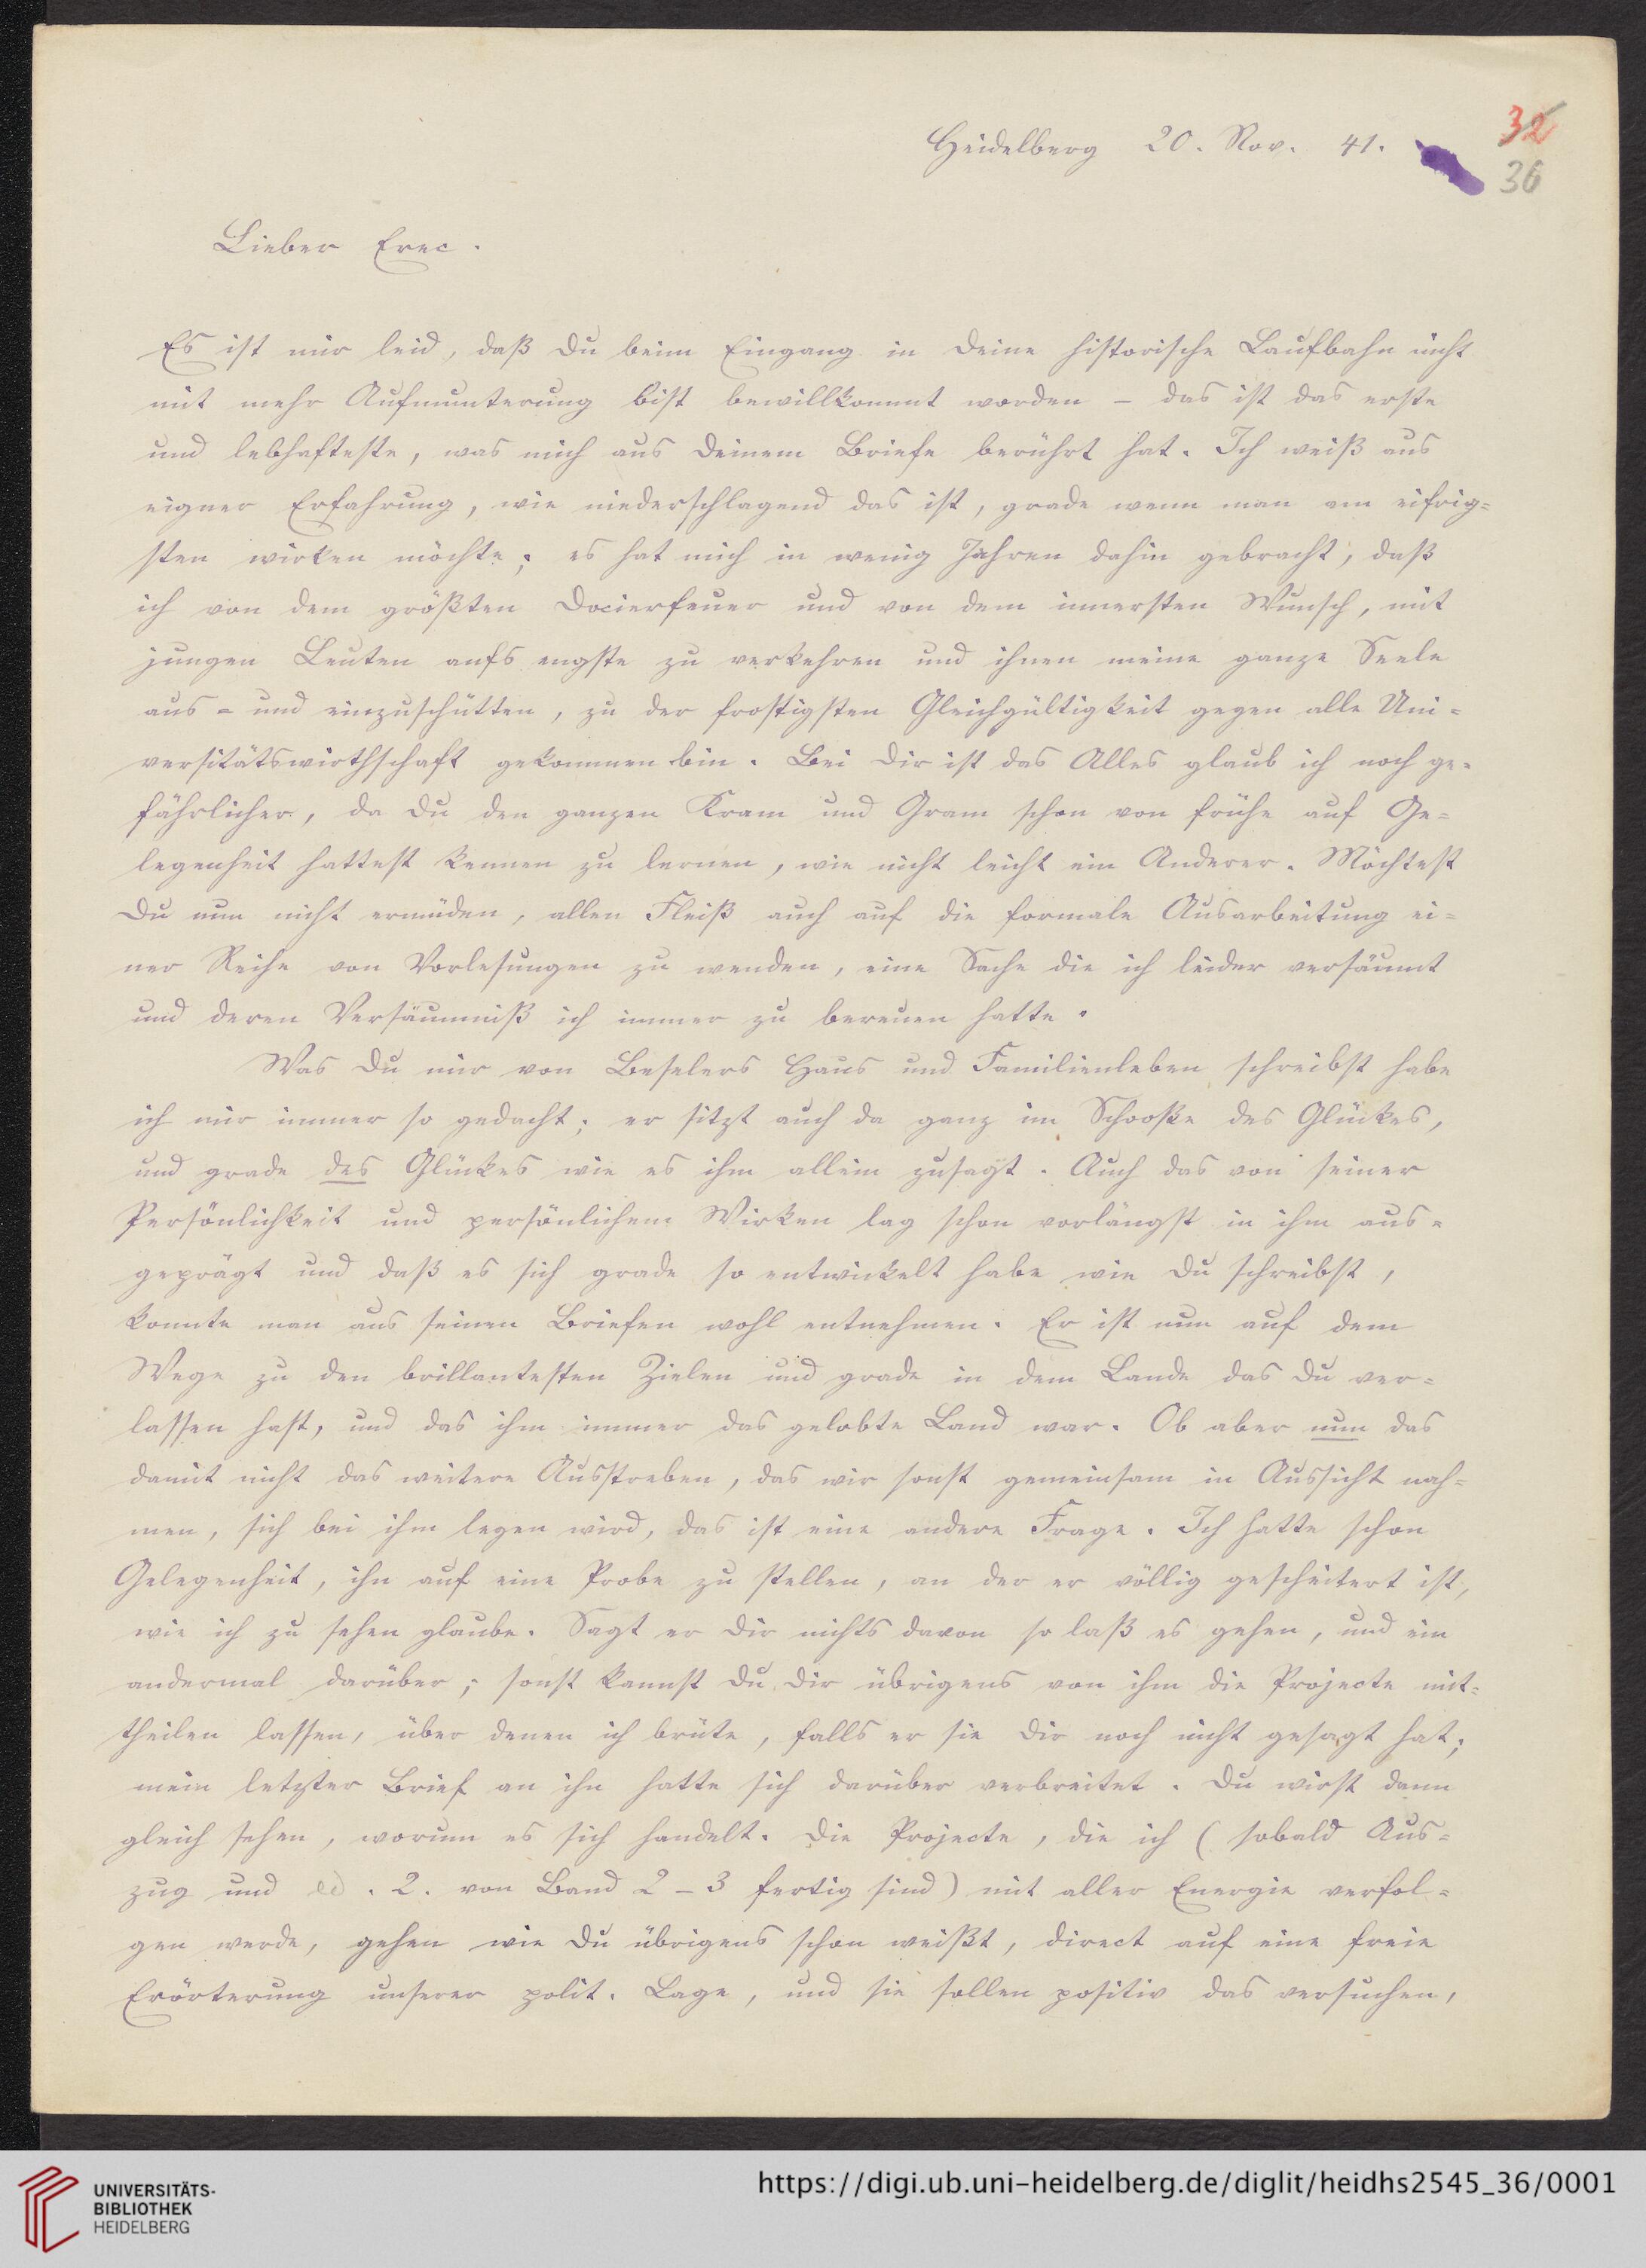 Heidelberg 20. Nov. 41.
32
36
Lieber Erec.
Es ist mir leid, daß Du beim Eingang in Deine historische Laufbahn nicht
mit mehr Aufmunterung bist bewillkommt worden – das ist das erste
und lebhafteste, was mich aus Deinem Briefe berührt hat. Ich weiß aus
eigner Erfahrung, wie niederschlagend das ist, grade wenn man am eifrig=
sten wirken möchte; es hat mich in wenig Jahren dahin gebracht, daß
ich von dem größten Docierfeuer und von dem innersten Wunsch, mit
jungen Leuten aufs engste zu verkehren und ihnen meine ganze Seele
aus= und einzuschütten, zu der frostigsten Gleichgültigkeit gegen alle Uni=
versitätswirthschaft gekommen bin. Bei Dir ist das Alles glaub ich noch ge=
fährlicher, da Du den ganzen Kram und Gram schon von frühe auf Ge=
legenheit hattest kennen zu lernen, wie nicht leicht ein Anderer. Möchtest
Du nun nicht ermüden, allen Fleiß auch auf die formale Ausarbeitung ei=
ner Reihe von Vorlesungen zu wenden, eine Sache die ich leider versäumt
und deren Versäumniß ich immer zu bereuen hatte.
Was Du mir von Beselers Haus und Familienleben schreibst habe
ich mir immer so gedacht; er sitzt auch da ganz im Schooße des Glückes,
und grade des Glückes wie es ihm allein zusagt. Auch das von seiner
Persönlichkeit und persönlichem Wirken lag schon vorlängst in ihm aus=
geprägt und daß es sich grade so entwickelt habe wie Du schreibst,
konnte man aus seinen Briefen wohl entnehmen. Er ist nun auf dem
Wege zu den brillantesten Zielen und grade in dem Lande das Du ver=
lassen hast, und das ihm immer das gelobte Land war. Ob aber nun das
damit nicht das weitere Ausstreben, das wir sonst gemeinsam in Aussicht nah=
men, sich bei ihm legen wird, das ist eine andere Frage. Ich hatte schon
Gelegenheit, ihn auf eine Probe zu stellen, an der er völlig gescheitert ist,
wie ich zu sehen glaube. Sagt er Dir nichts davon so laß es gehen, und ein
andermal darüber; sonst kannst Du Dir übrigens von ihm die Projecte mit=
theilen lassen, über denen ich brüte, falls er sie Dir noch nicht gesagt hat;
mein letzter Brief an ihn hatte sich darüber verbreitet. Du wirst dann
gleich sehen, worum es sich handelt. Die Projecte, die ich (sobald Aus=
zug und ed. 2. von Band 2–3 fertig sind) mit aller Energie verfol=
gen werde, gehen wie Du übrigens schon weißt, direct auf eine freie
Erörterung unserer polit. Lage, und sie sollen positiv das versuchen,
UNIVERSITÄTS-
BIBLIOTHEK
HEIDELBERG
https://digi.ub.uni-heidelberg.de/diglit/heidhs2545_36/0001